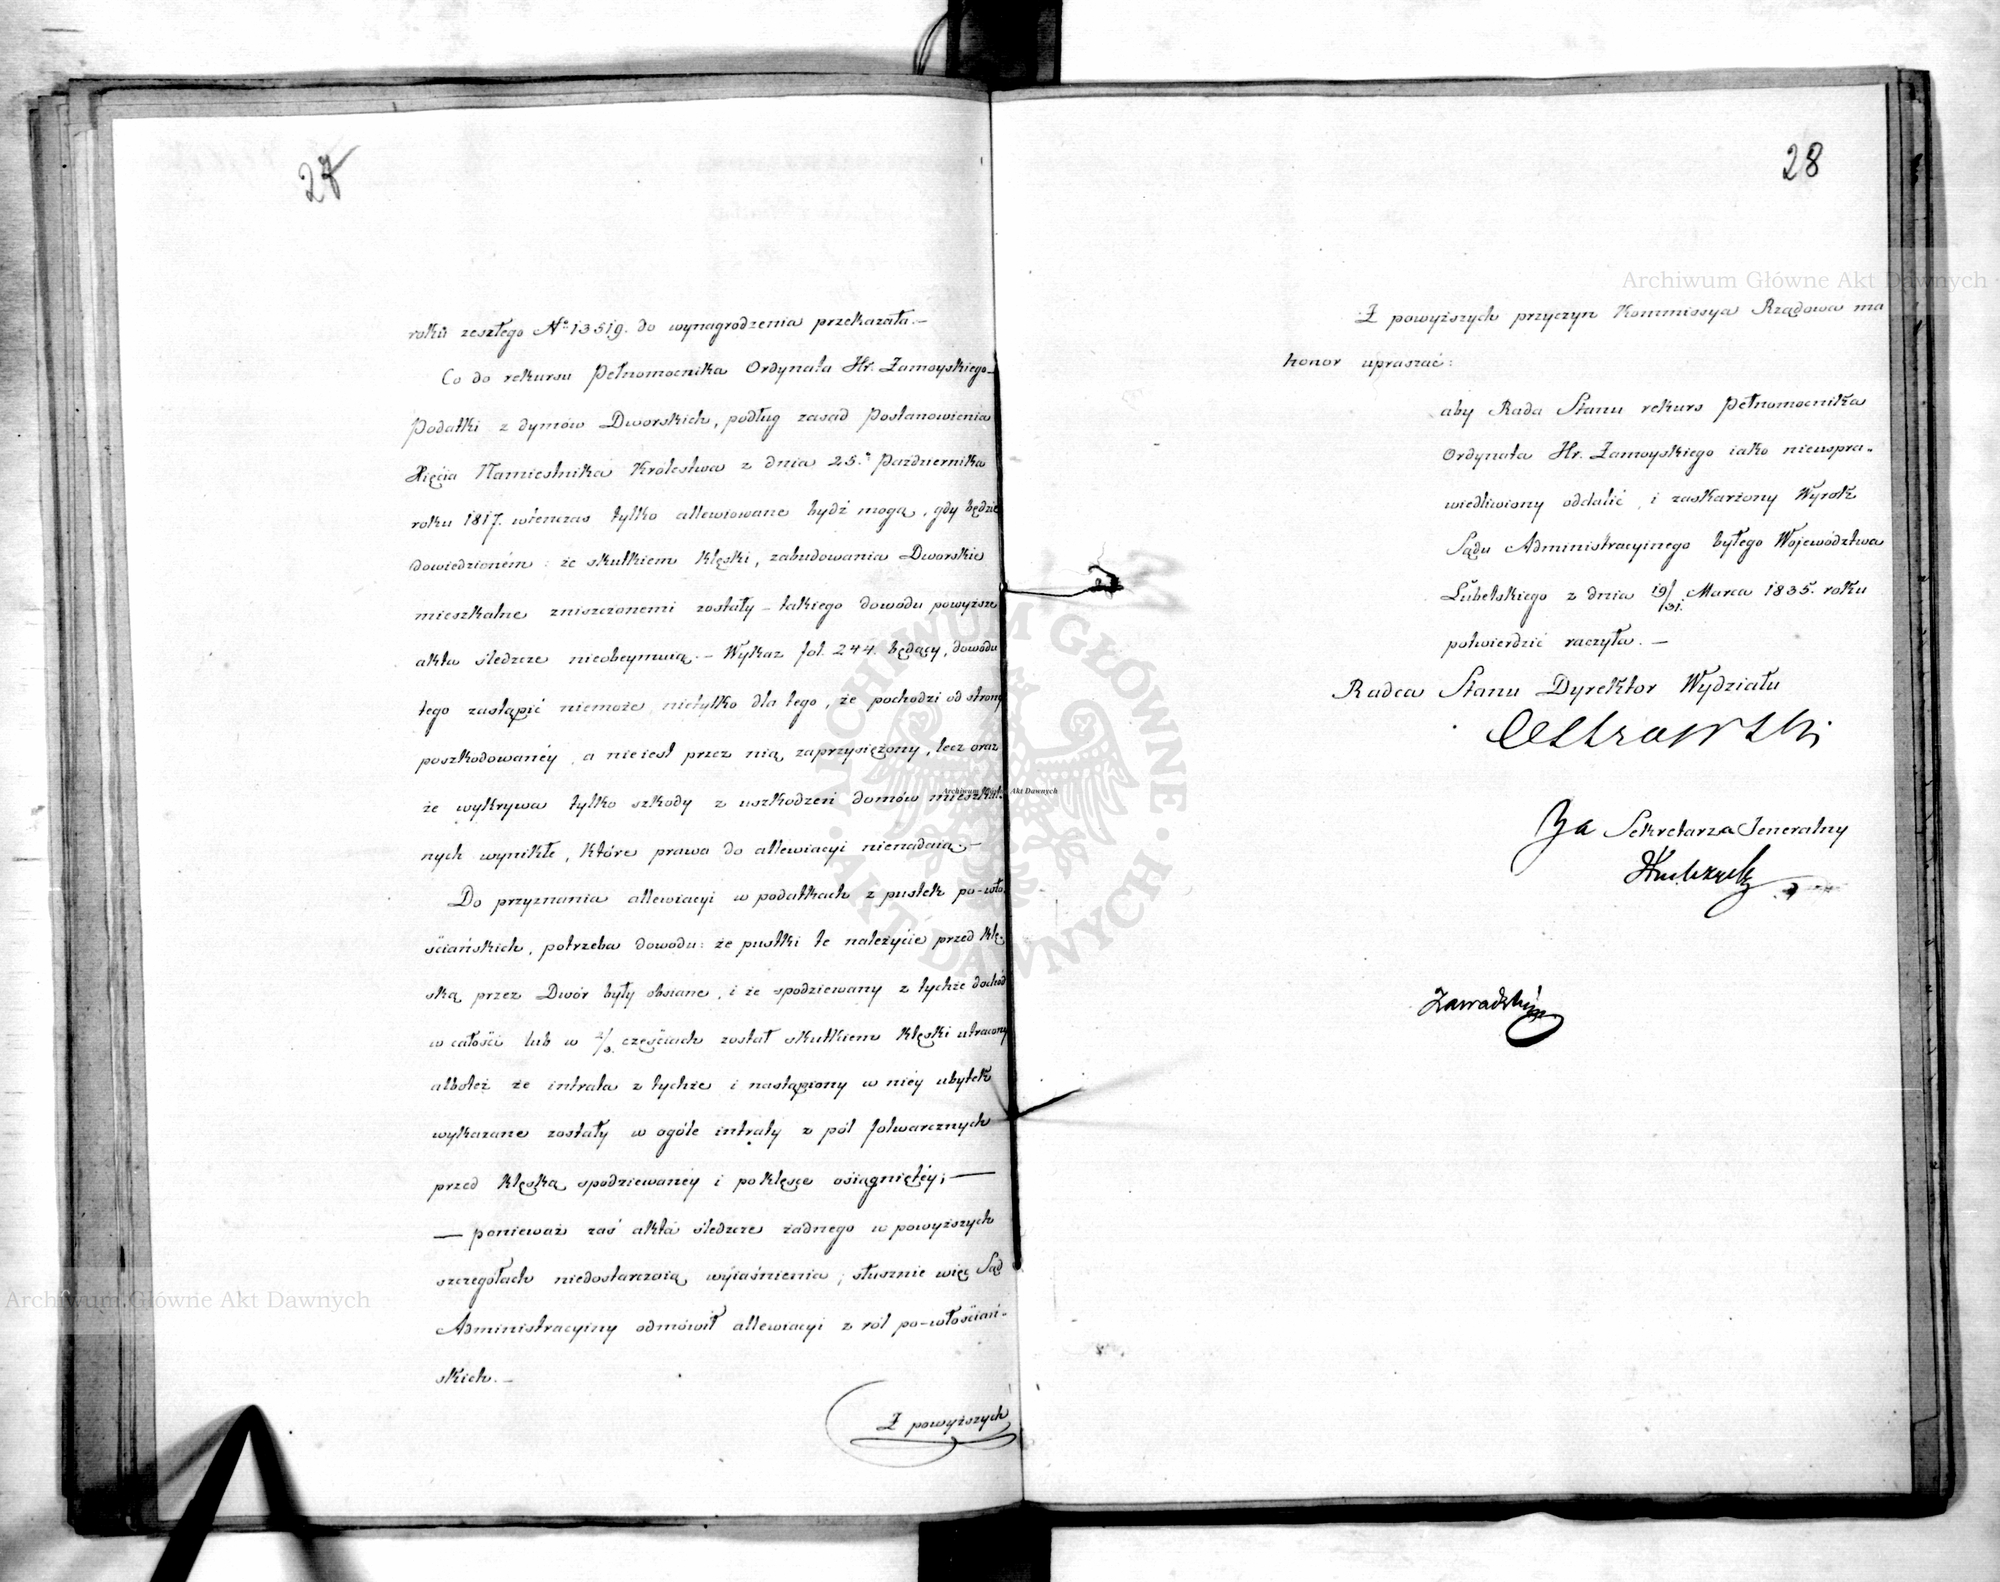 27
roku zeszłego No 13519. do wynagrodzenia przekazała. –
Co do rekursu Pełnomocnika Ordynata Hr. Zamoyskiego –
Podatki z dymów Dworskich, podług zasad Postanowienia
Xięcia Namiestnika Królestwa z dnia 25.o Października
roku 1817. wtenczas tylko allewiowane bydź mogą, gdy będzie
dowiedzioném: że skutkiem klęski, zabudowania Dworskie
mieszkalne zniszczonemi zostały – takiego dowodu powyższe
akta śledcze nieobeymuią. – Wykaz fol. 244. będący, dowodu
tego zastąpić niemoże, nietylko dla tego, że pochodzi od strony
poszkodowanéy, a nie iest przez nią zaprzysiężony, lecz oraz
że wykrywa tylko szkody z uszkodzeń domów mieszkal-
nych wynikłe, które prawa do allewiacyi nienadaią. –
Do przyznania allewiacyi w podatkach z pustek po-wło-
ściańskich, potrzeba dowodu: że pustki te należycie przed klę-
ską przez Dwór były obsiane, i że spodziewany z tychże dochód
w całości lub w 2/3. częściach został skutkiem klęski utracony
alboteż że intrata z tychże i nastąpiony w niéy ubytek
wykazane zostały w ogóle intraty z pól folwarcznych
przed klęską spodziewanéy i po klęsce osiągniętéy; —
— ponieważ zaś akta śledcze żadnego w powyższych
szczegółach niedostarczaią wyiaśnienia; słusznie więc Sąd
Administracyiny odmówił allewiacyi z ról po-włościań-
skich. –
Z powyższych
28
Z powyższych przyczyn Kommissya Rządowa ma
honor upraszać:
aby Rada Stanu rekurs Pełnomocnika
Ordynata Hr. Zamoyskiego iako nieuspra-
wiedliwiony oddalić, i zaskarżony Wyrok
Sądu Administracyinego byłego Województwa
Lubelskiego z dnia 19/31. Marca 1835. roku
potwierdzić raczyła. –
Radca Stanu Dyrektor Wydziału
Ostrowski
Za Sekretarza Jeneralny
Zawadzki
Archiwum Główne Akt Dawnych
Archiwum Główne Akt Dawnych
Archiwum Główne Akt Dawnych
ARCHIWUM GŁÓWNE
AKT DAWNYCH